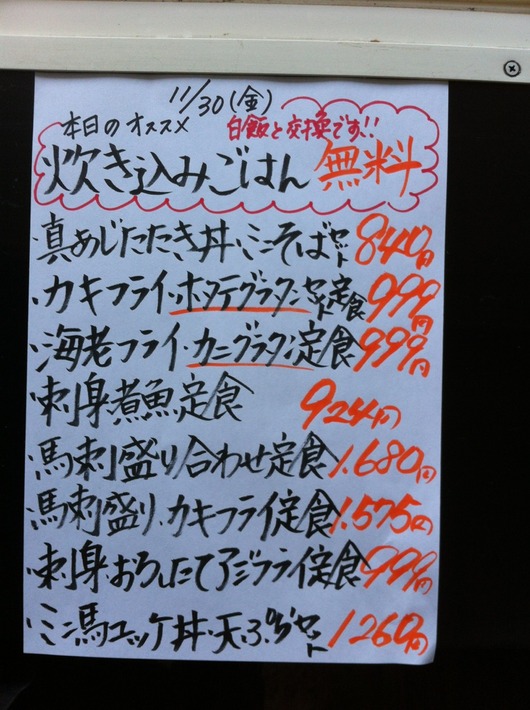 11/30(金)
本日のオススメ 白飯と交換です!!
炊き込みごはん 無料
真あじたたき丼・ミニそばセット 840円
・カキフライ・ホタテグラタンセット定食 999円
・海老フライ・カニグラタン定食 999円
・刺身煮魚定食 924円
・馬刺盛り合わせ定食 1.680円
・馬刺盛り・カキフライ定食 1.575円
・刺身・おろしたてアジフライ定食 999円
・ミニ馬ユッケ丼・天ぷらセット 1260円